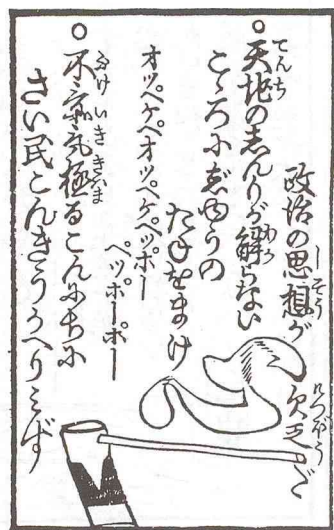 政治の思想が欠乏だ
○天地のしんりが解らない
こゝろにじゆうの
たねをまけ
オッペケペオッペケペッポー
ペッポーポー
○不景氣極るこんにちに
さい民こんきうかへりみず